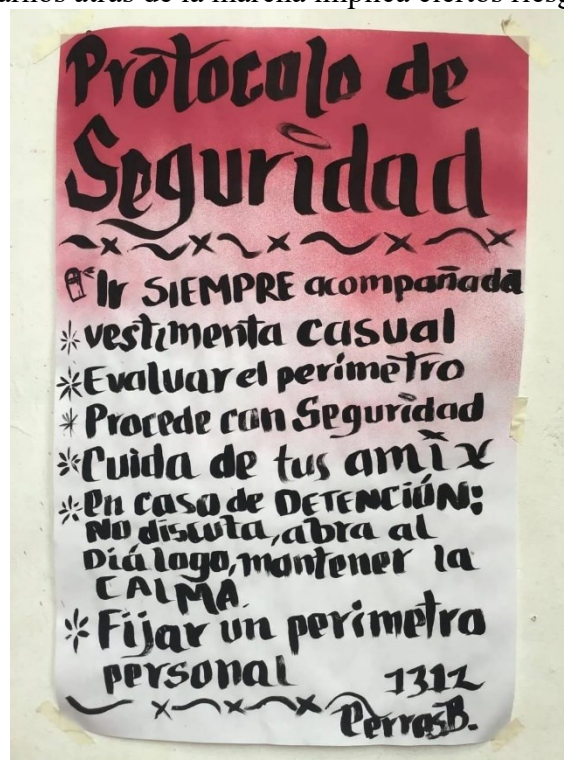 Protocolo de
Seguridad
Ir SIEMPRE acompañada
vestimenta casual
Evaluar el perímetro
Procede con Seguridad
Cuida de tus amix
En CASO de DETENCIÓN:
No discuta, abra al
Diálogo, mantener la
CALMA.
Fijar un perímetro
personal
1312
PerrasB.